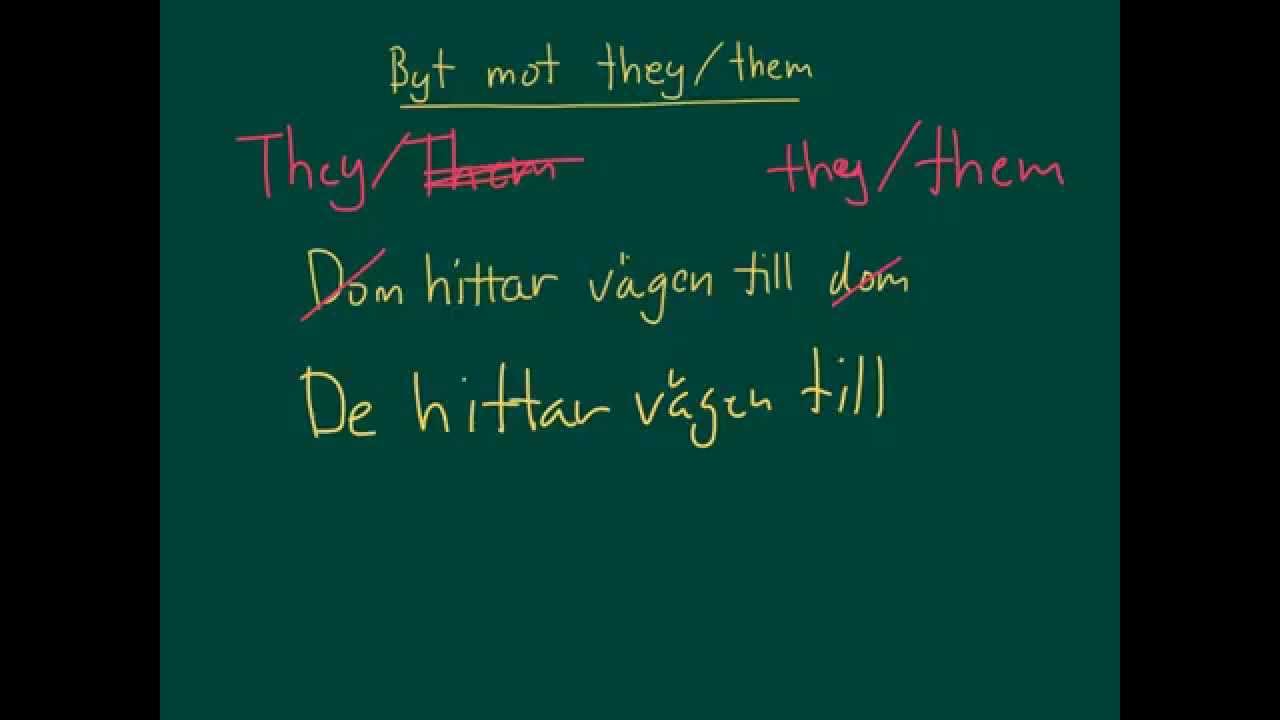 Byt mot they/them
They/Them they/them
Dom hittar vägen till dom
De hittar vägen till